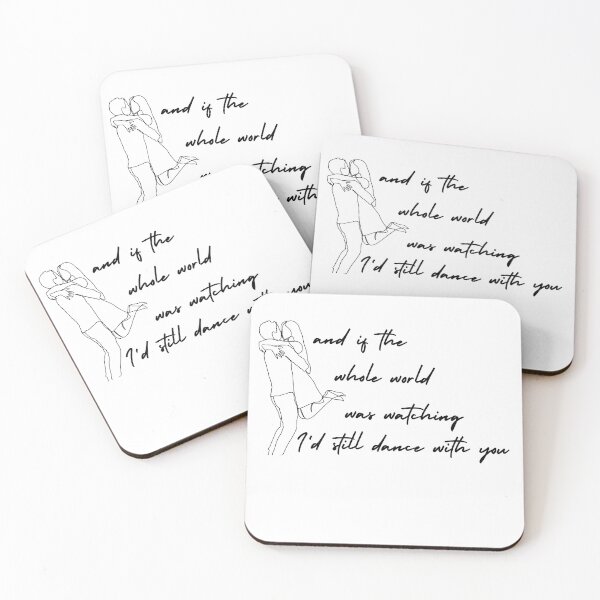 and if the
whole world
watching
with
and if the
whole world
was watching
I'd still dance with you
and if the
whole world
was watching
I'd still dance with you
and if the
whole world
was watching
I'd still dance with you